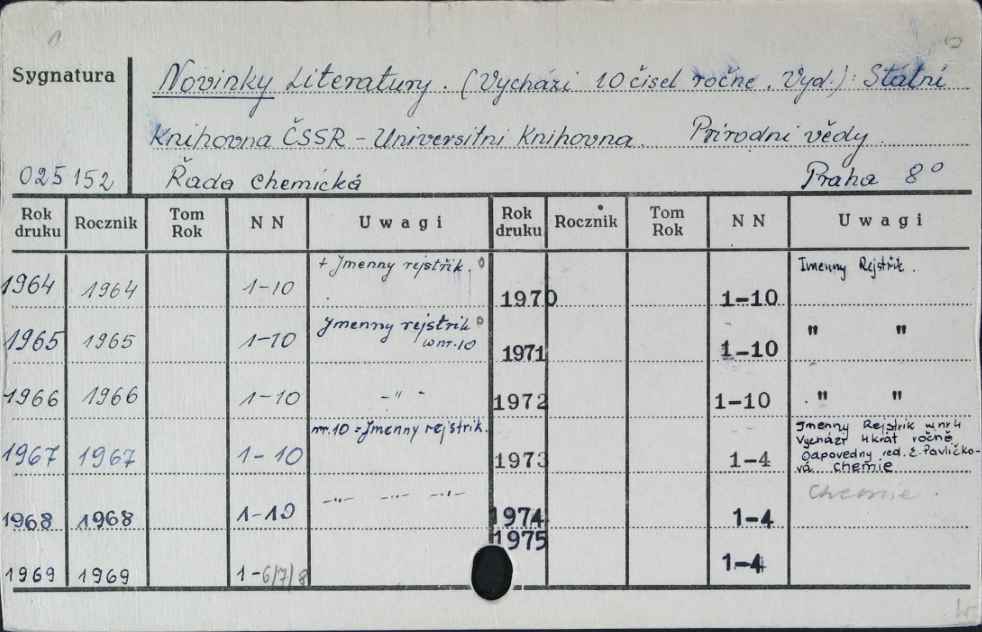 Sygnatura
Novinky Literatury. (Vychází 10 čísel ročne. Vyd.): Státní
Knihovna ČSSR - Universitni Knihovna. Prírodni vědy.
025152 Řada chemická Praha 8°
Rok druku Rocznik Tom Rok NN Uwagi Rok druku Rocznik Tom Rok NN Uwagi
1964 1964 1-10 + Jmenny rejstřik. 1970 1-10 Imenny Rejstřic.
1965 1965 1-10 Jmenny rejstrik w nr. 10 1971 1-10 " "
1966 1966 1-10 -"- 1972 1-10 " "
1967 1967 1-10 nr. 10 = Jmenny rejstrik. 1973 1-4 Jmenny Rejstrik w nr 4
Vychází 4krát ročně
Odpovedny red. E. Pavličko-
vá chemie
1968 1968 1-10 -"- -"- -"- 1974 1-4 Chemie.
1969 1969 1-6/7/8 1975 1-4